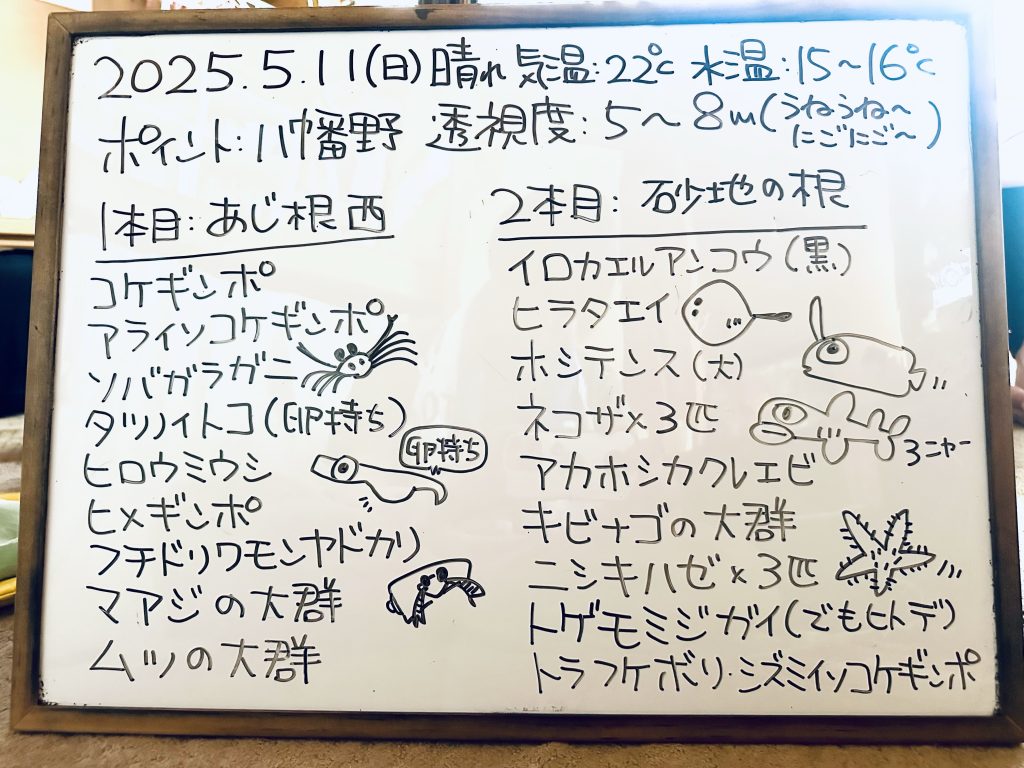 2025.5.11(日)晴れ 気温:22℃ 水温:15~16℃
ポイント:八幡野 透視度:5~8m(うねうね~
にごにご~)
1本目:あじ根 西
コケギンポ
アライソコケギンポ
ソバガラガニ
タツノイトコ(卵持ち)
ヒロウミウシ
卵持ち
ヒメギンポ
フチドリワモンヤドカリ
マアジの大群
ムツの大群
2本目:砂地の根
イロカエルアンコウ(黒)
ヒラタエイ
ホシテンス(大)
ネコザ×3匹
3ニャー
アカホシカクレエビ
キビナゴの大群
ニシキハゼ×3匹
トゲモミジガイ(でもヒトデ)
トラフケボリ・シズミイソコケギンポ